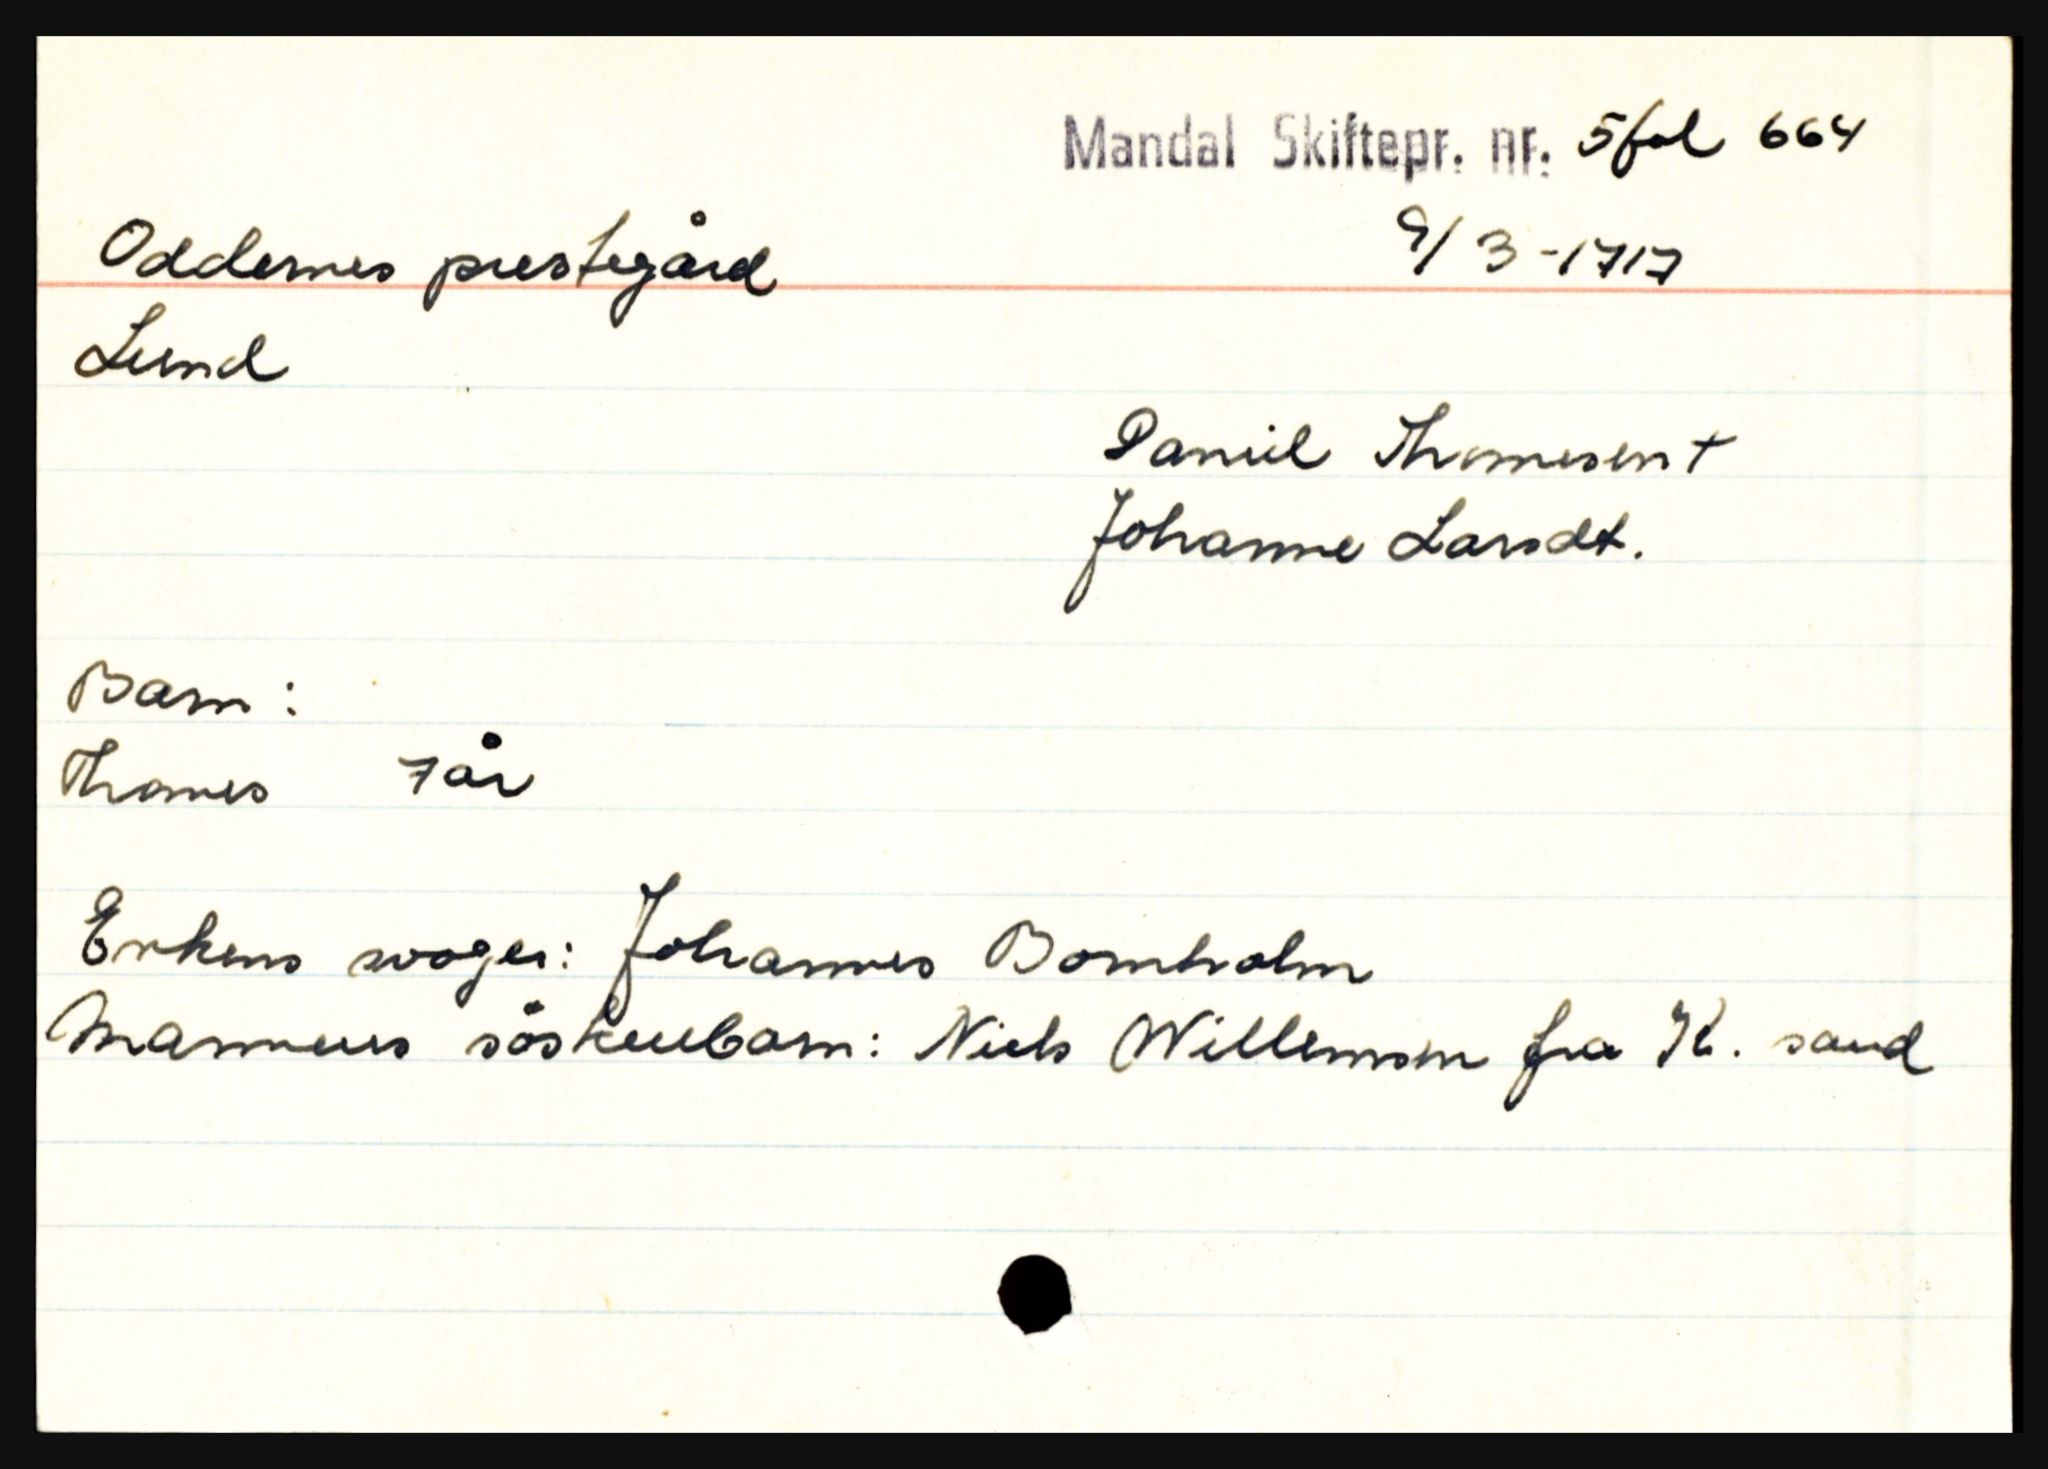 Mandal Skiftepr. nr. 5 fol 664
9/3-1717
Oddernes prestegård
Lund
Daniel Thomesen +
Johanne Larsdt.
Barn:
Thomes 7 år
Enkens svoger: Johannes Bornholm
Mannens söskenbarn: Niels Willemsen fra K. sand